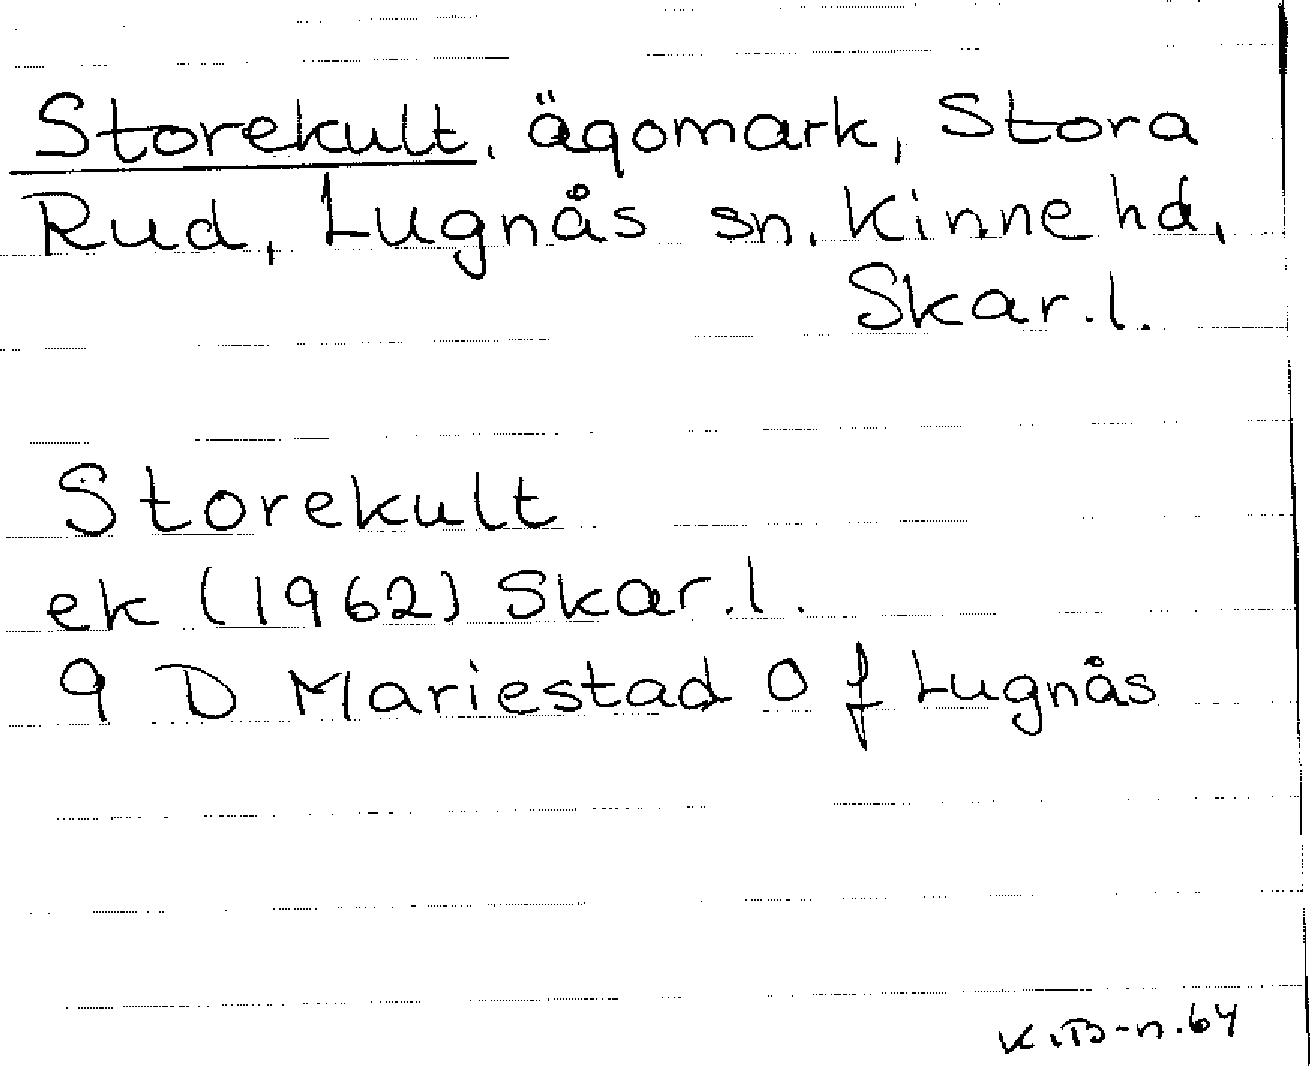 Storekult, ägomark, Stora
Rud, Lugnås sn, Kinne hd,
Skar.l.
Storekult
ek (1962) Skar.l.
9 D Mariestad O f Lugnås
K.B-n.64